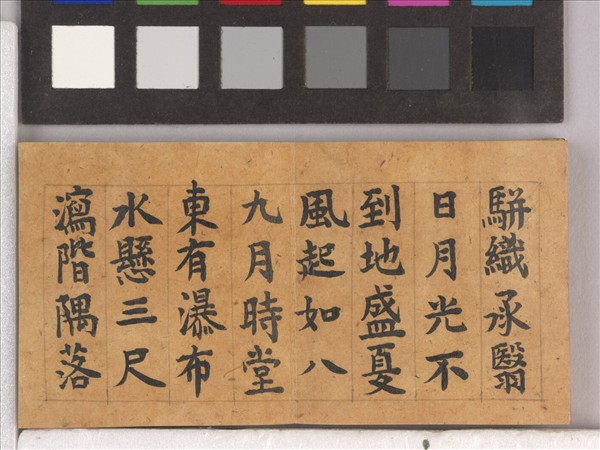 駢織承翳
日月光不
到地盛夏
風起如八
九月時堂
東有瀑布
水懸三尺
瀉階隅落